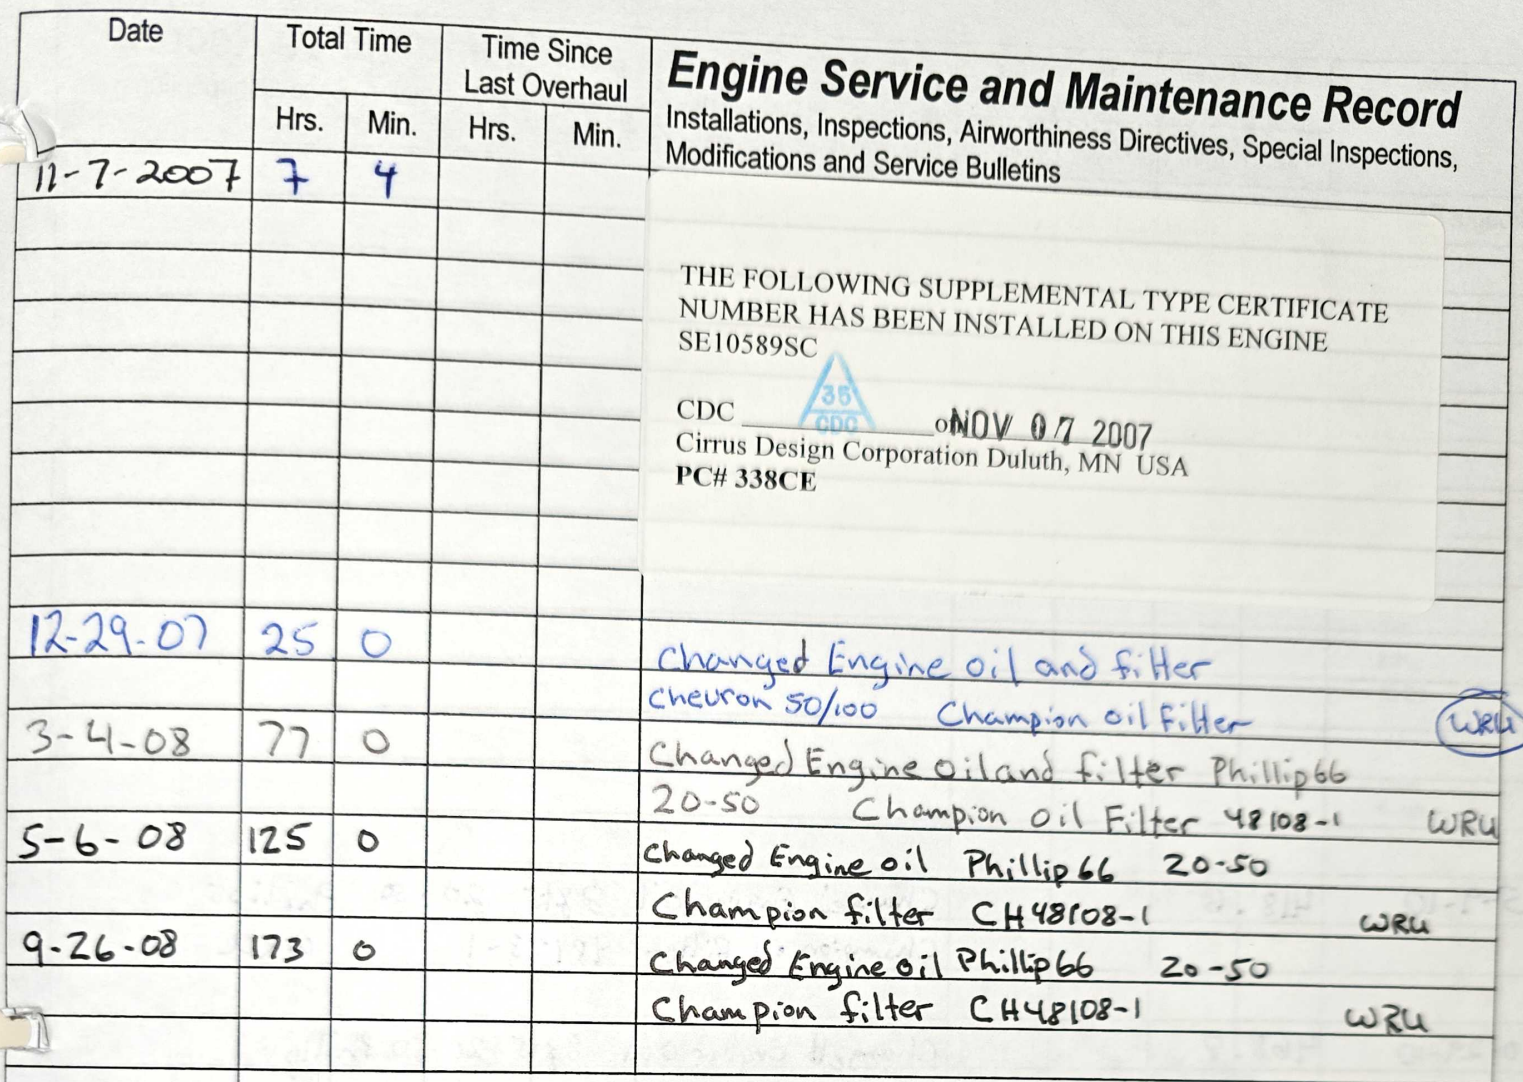 Date Total Time Time Since Last Overhaul Engine Service and Maintenance Record
Installations, Inspections, Airworthiness Directives, Special Inspections,
Modifications and Service Bulletins
Hrs. Min. Hrs. Min.
11-7-2007 7 4
THE FOLLOWING SUPPLEMENTAL TYPE CERTIFICATE
NUMBER HAS BEEN INSTALLED ON THIS ENGINE
SE10589SC
35
CDC
CDC on NOV 07 2007
Cirrus Design Corporation Duluth, MN USA
PC# 338CE
12-29-07 25 0 Changed Engine oil and filter
Chevron 50/100 Champion oil Filter WRU
3-4-08 77 0 Changed Engine oil and filter Phillip 66
20-50 Champion Oil Filter 48108-1 WRU
5-6-08 125 0 Changed Engine oil Phillip 66 20-50
Champion filter CH48108-1 WRU
9-26-08 173 0 Changed Engine oil Phillip 66 20-50
Champion filter CH48108-1 WRU